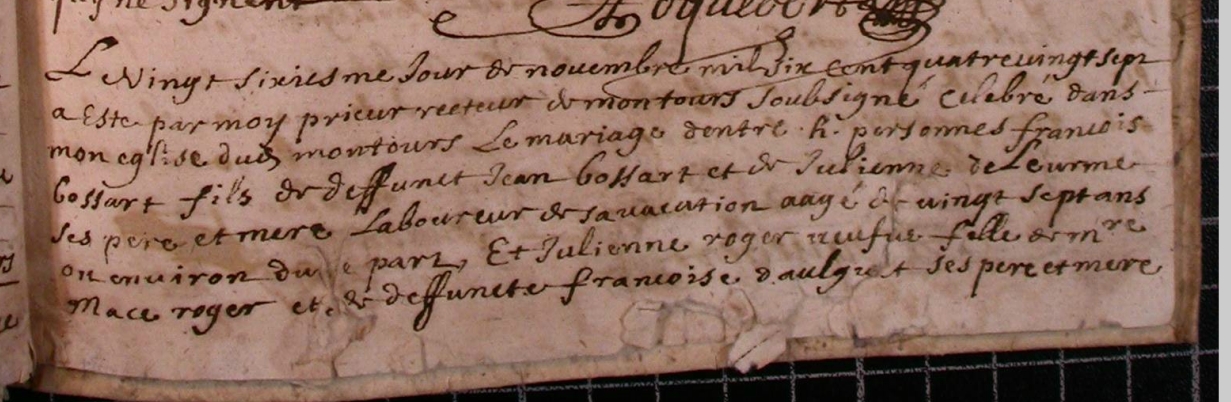 qu ne signent
Le vingt sixiesme Jour de novembre mil six cent quatre vingt sept
a Este par moy prieur recteur de montours soubsigné Celebré dans
mon eglise dud montours Le mariage dentre h. personnes francois
bossart fils de deffunct Jean bossart et de Julienne de Leurme
ses pere et mere Laboureur de sa vacation aagé de vingt sept ans
ou environ du e part, Et Julienne roger veufue fille de mre
Mace roger et de deffuncte francoise daulgust ses pere et mere